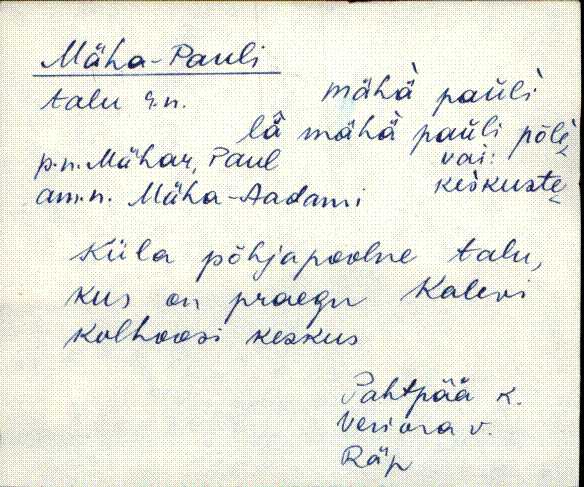 Mäha-Pauli
talu r.n. mähà paùlì
lä̂ mähà paùli põlè,
p.n. Mähar, Paul vai:
am.n. Mäha-Aadami keskuste
Küla põhjapoolne talu,
kus on praegu Kalevi
kolhoosi keskus
Pahtpää k.
Veriora v.
Räp